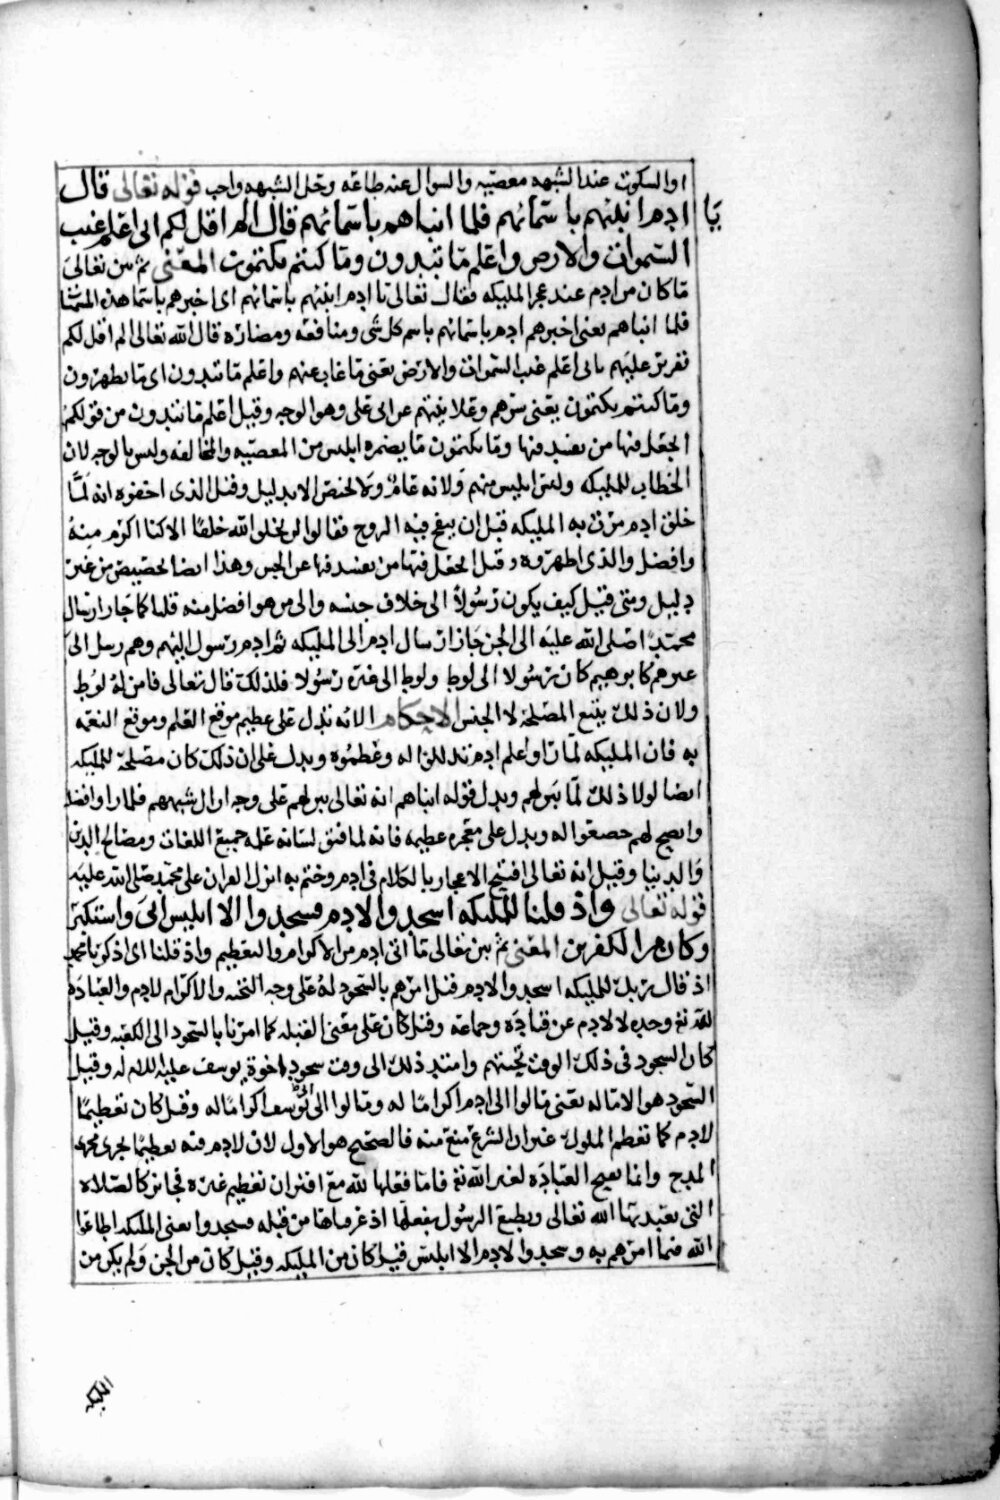 او السكوت عند الشبهه معصيه والسوال عنه طاعه وحل الشبهه واجب قوله تعالى قال
يا ادم انبئهم باسمائهم فلما انباهم باسمائهم قال الم اقل لكم انى اعلم غيب
السموات والارض واعلم ما تبدون وما كنتم تكتمون المعنى ثم بين تعالى
ما كان من ادم عند عجز المليكه فقال تعالى يا ادم انبئهم باسمائهم اى اخبرهم باسما هذه
فلما انباهم يعنى اخبرهم ادم باسمائهم باسم كل شى ومنافعه ومضاره قال الله تعالى الم اقل لكم
عليهم بانى اعلم غيب السموات والارض يعنى ما غاب عنهم واعلم ما تبدون اى ما تظهرون
وما كنتم تكتمون يعنى سرهم وعلانيتهم عن ابى على وهو الوجه وقيل اعلم ما تبدون من قولكم
اتجعل فيها من يفسد فيها وما تكتمون ما يضمره ابليس من المعصيه والمخالفه وليس بالوجه لان
الخطاب للمليكه وليس ابليس منهم ولانه عام ولا يخص الا بدليل وقيل الذى اخفوه انه لما
خلق ادم مرت به المليكه قبل ان ينفخ فيه الروح فقالوا لن يخلق الله خلقا الا كنا اكرم منه
وافضل والذى اظهروه وقيل اتجعل فيها من يفسد فيها عن الحسن وهذا ايضا تخصيص من غير
دليل ومتى قيل كيف يكون رسولا الى خلاف جنسه والى من هو افضل منه قلنا كما جاز ارسال
محمد صلى الله عليه الى الجن جاز ارسال ادم الى المليكه ثم ادم رسول اليهم وهم رسل الى
غيرهم كابرهيم كان رسولا الى لوط ولوط الى غيره رسولا فلذلك قال تعالى فامن له لوط
ولان ذلك يتبع المصلحه لا الجنس الاحكام الايه تدل على عظيم موقع العلم وموقع النعمه
به فان المليكه لما راوا علم ادم تذللوا له وعظموه ويدل على ان ذلك كان مصلحة للمليكه
ايضا لولا ذلك لما بين لهم ويدل قوله انباهم انه تعالى بين لهم على وجه ازال شبههم فلما راوا فضله
واتضح لهم خضعوا له ويدل على معجزه عظيمه فانه لما فتق لسانه علمه جميع اللغات ومصالح الدين
والدنيا وقيل انه تعالى افتتح الاعجاز بالكلام فى ادم وختم به انزل القران على محمد صلى الله عليه
قوله تعالى واذ قلنا للمليكه اسجدوا لادم فسجدوا الا ابليس ابى واستكبر
وكان من الكفرين المعنى ثم بين تعالى ما اتى ادم من الاكرام والتعظيم واذ قلنا اى اذكر يا محمد
اذ قال ربك للمليكه اسجدوا لادم قيل امرهم بالسجود له على وجه التحيه والاكرام لادم والعباده
لله تع وحده لا لادم عن قتاده وجماعه وقيل كان على معنى القبله كما امرنا بالسجود الى الكعبه وقيل
كان السجود فى ذلك الوقت تحيتهم وامتد ذلك الى وقت سجود اخوة يوسف عليه السلام له وقيل
السجود هو الاماله يعنى مالوا الى ادم اكراما له ومالوا الى يوسف اكراما له وقيل كان تعظيما
لادم كما تعظم الملوك غير ان الشرع منع منه فالصحيح هو الاول لان لادم فيه تعظيما يجرى مجرى
المدح وانما يقبح العباده لغير الله تع فاما فعلها لله مع اقتران تعظيم غيره فجائز كالصلاه
التى تعبدنا الله تعالى ويطيع الرسول بفعلها اذ عرفناها من قبله فسجدوا يعنى المليكه اطاعوا
الله فيما امرهم به وسجدوا لادم الا ابليس قيل كان من المليكه وقيل كان من الجن ولم يكن من
المليكه